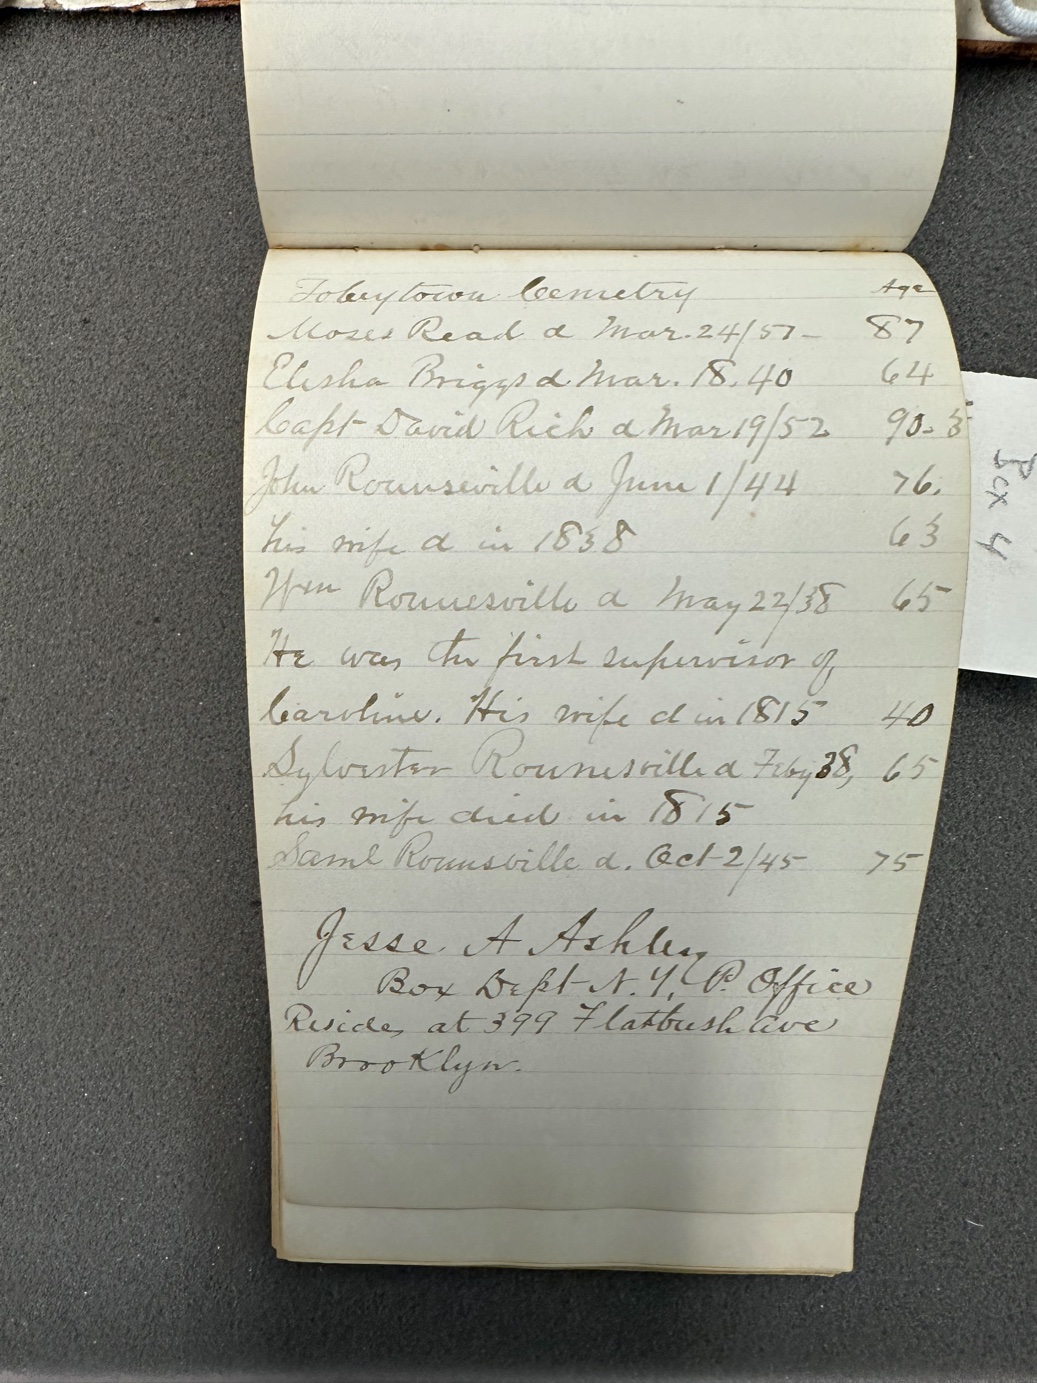 Tobeytown Cemetry Age
Moses Read d Mar. 24/57 - 87
Elisha Briggs d Mar. 18, 40 64
Capt David Rich d Mar 19/52 90-5
John Rounseville d June 1/44 76.
his wife d in 1838 63
Wm Rounesville d May 22/38 65
He was the first supervisor of
Caroline. His wife d in 1815 40
Sylvester Rounesville d Feby 38, 65
his wife died in 1815
Saml Rounsville d. Oct 2/45 75
Jesse A Ashley
Box Dept N. Y. P. Office
Resides at 399 Flatbush Ave
Brooklyn.
Box 4